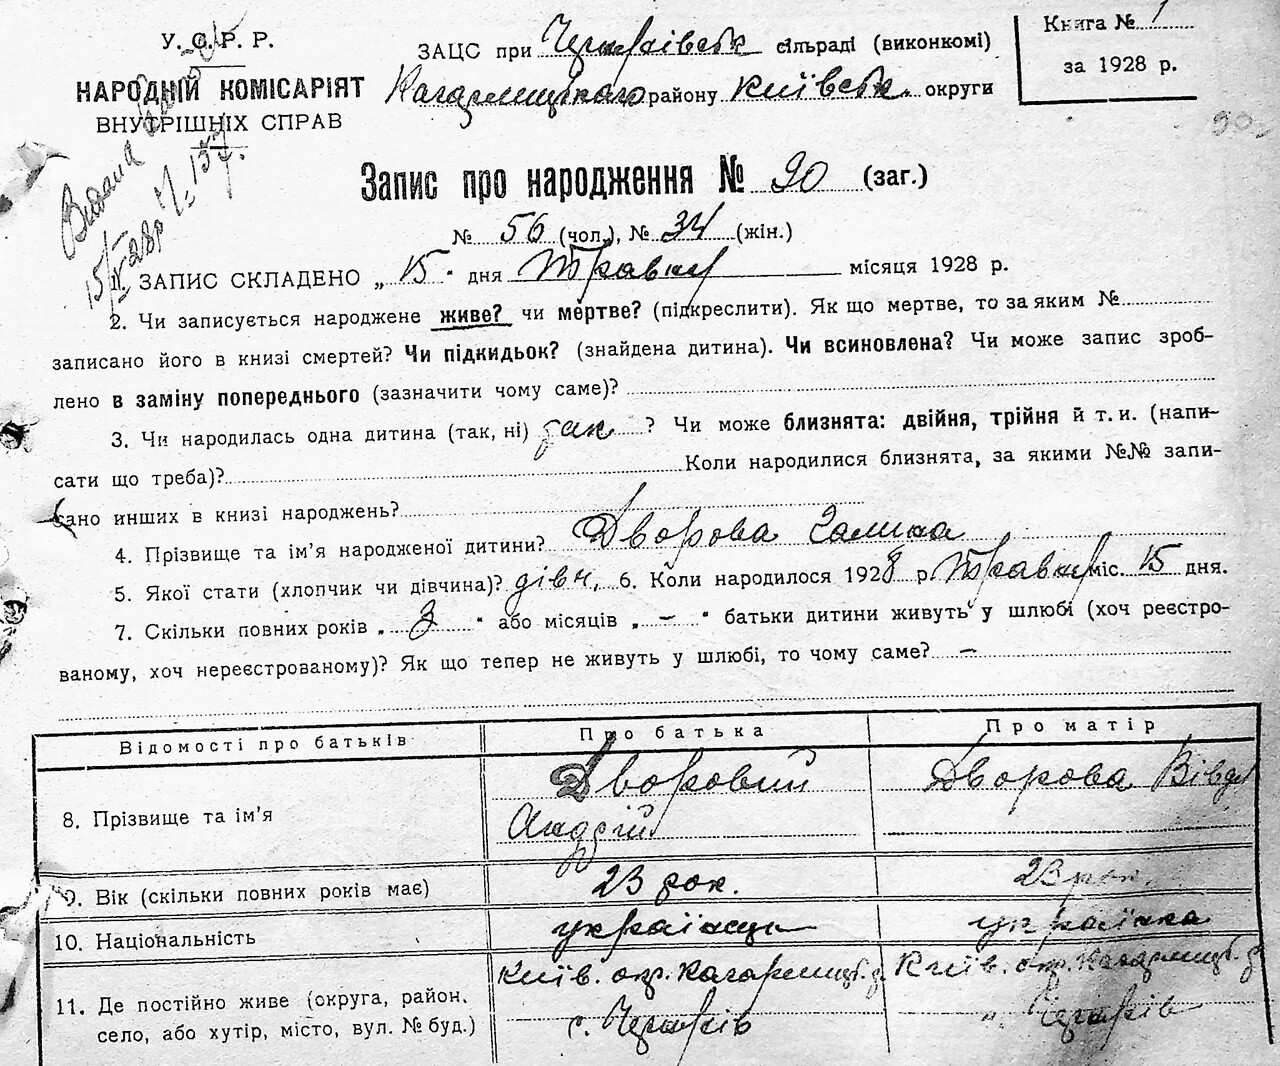 У. С. Р. Р.
НАРОДНІЙ КОМІСАРІЯТ
ВНУТРІШНІХ СПРАВ
ЗАЦС при сільраді (виконкомі)
Кагарлицького району Київськ. округи
Книга № 1
за 1928 р.
90
Видана
15/V 28р. № 157.
Запис про народження № 90 (заг.)
№ 56 (чол.), № 34 (жін.)
1. ЗАПИС СКЛАДЕНО „ 15 " дня Травня місяця 1928 р.
2. Чи записується народжене живе? чи мертве? (підкреслити). Як що мертве, то за яким №
записано його в книзі смертей? Чи підкидьок? (знайдена дитина). Чи всиновлена? Чи може запис зроб-
лено в заміну попереднього (зазначити чому саме)?
3. Чи народилась одна дитина (так, ні) так ? Чи може близнята: двійня, трійня й т. и. (напи-
сати що треба)? Коли народилися близнята, за якими №№ запи-
сано инших в книзі народжень?
4. Прізвище та ім'я народженої дитини? Дворова Галина
5. Якої стати (хлопчик чи дівчина)? дівч. 6. Коли народилося 1928 р. Травня міс. 15 дня.
7. Скільки повних років „ 3 " або місяців „ – " батьки дитини живуть у шлюбі (хоч реєстро-
ваному, хоч нереєстрованому)? Як що тепер не живуть у шлюбі, то чому саме? –
Відомості про батьків Про батька Про матір
8. Прізвище та ім'я Дворовий Андрій Дворова Вівдя
9. Вік (скільки повних років має) 23 рок. 23 рок.
10. Національність українець українка
11. Де постійно живе (округа, район, Київ. окр. Кагарлицьк. р. Київ. окр. Кагарлицьк. р.
село, або хутір, місто, вул. № буд.) с.